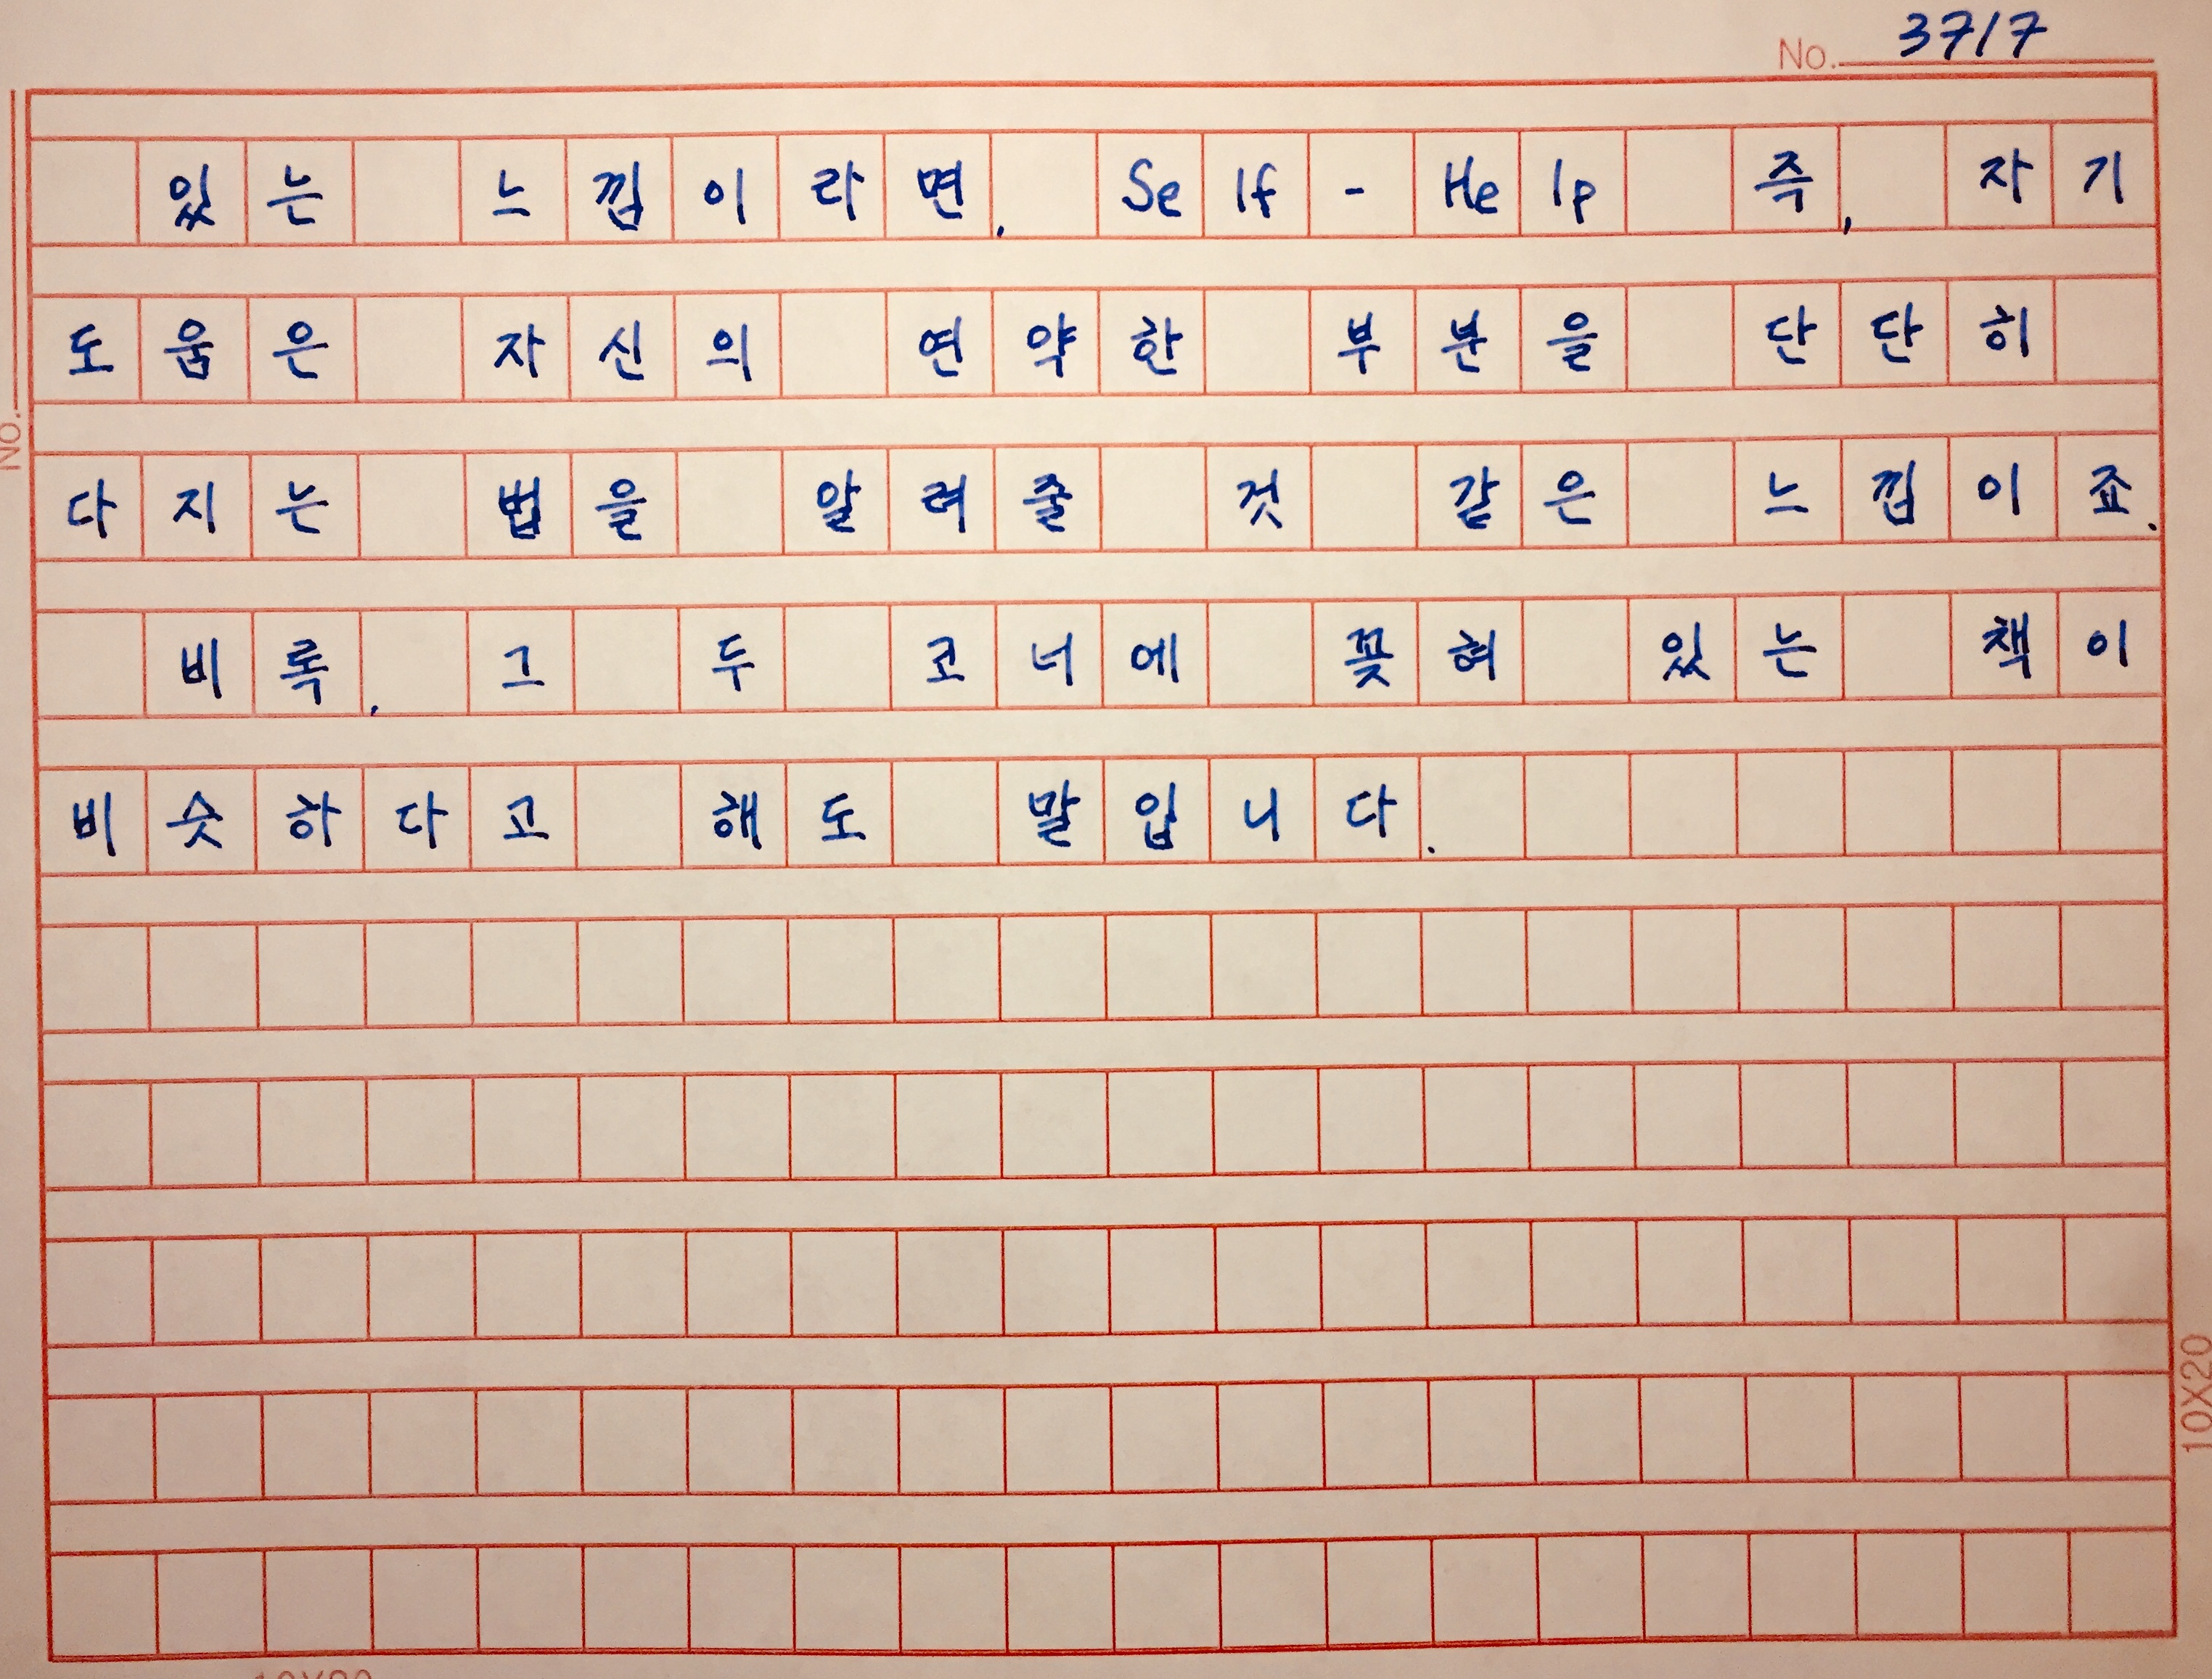 No. 3717
있는 느낌이라면, Self-Help 즉, 자기
도움은 자신의 연약한 부분을 단단히
다지는 법을 알려줄 것 같은 느낌이죠.
비록, 그 두 코너에 꽂혀 있는 책이
비슷하다고 해도 말입니다.
No.
10X20